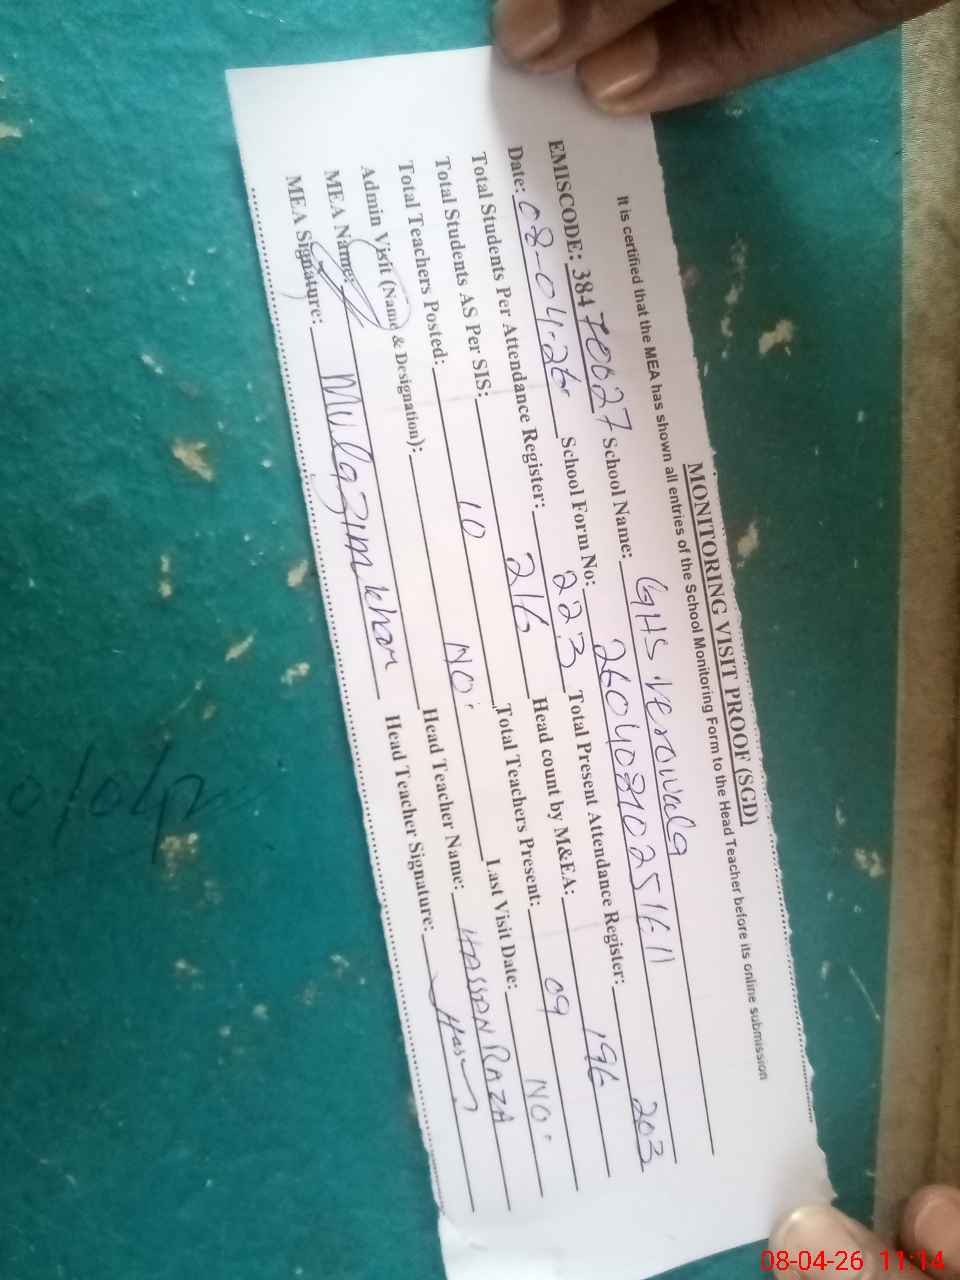 MONITORING VISIT PROOF (SGD)
It is certified that the MEA has shown all entries of the School Monitoring Form to the Head Teacher before its online submission
EMISCODE: 38470027 School Name: GHS Verowala
Date: 08-04-26 School Form No: 260408102516 11
Total Students Per Attendance Register: 223 Total Present Attendance Register: 203
Total Students AS Per SIS: 216 Head count by M&EA: 196
Total Teachers Posted: 10 Total Teachers Present: 09
Admin Visit (Name & Designation): NO. Last Visit Date: NO.
MEA Name: Mulazim khan Head Teacher Name: HASSAN RAZA
MEA Signature: Head Teacher Signature: Hasan
08-04-26 11:14